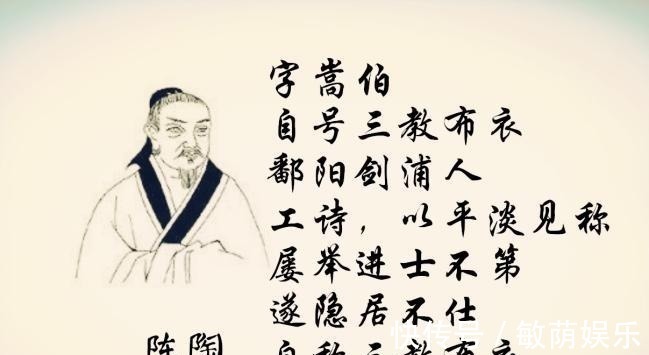 字嵩伯
自号三教布衣
鄱阳剑浦人
工诗，以平淡见称
屡举进士不第
遂隐居不仕
自称三教布衣
陈陶
快传号／敏萌娱乐